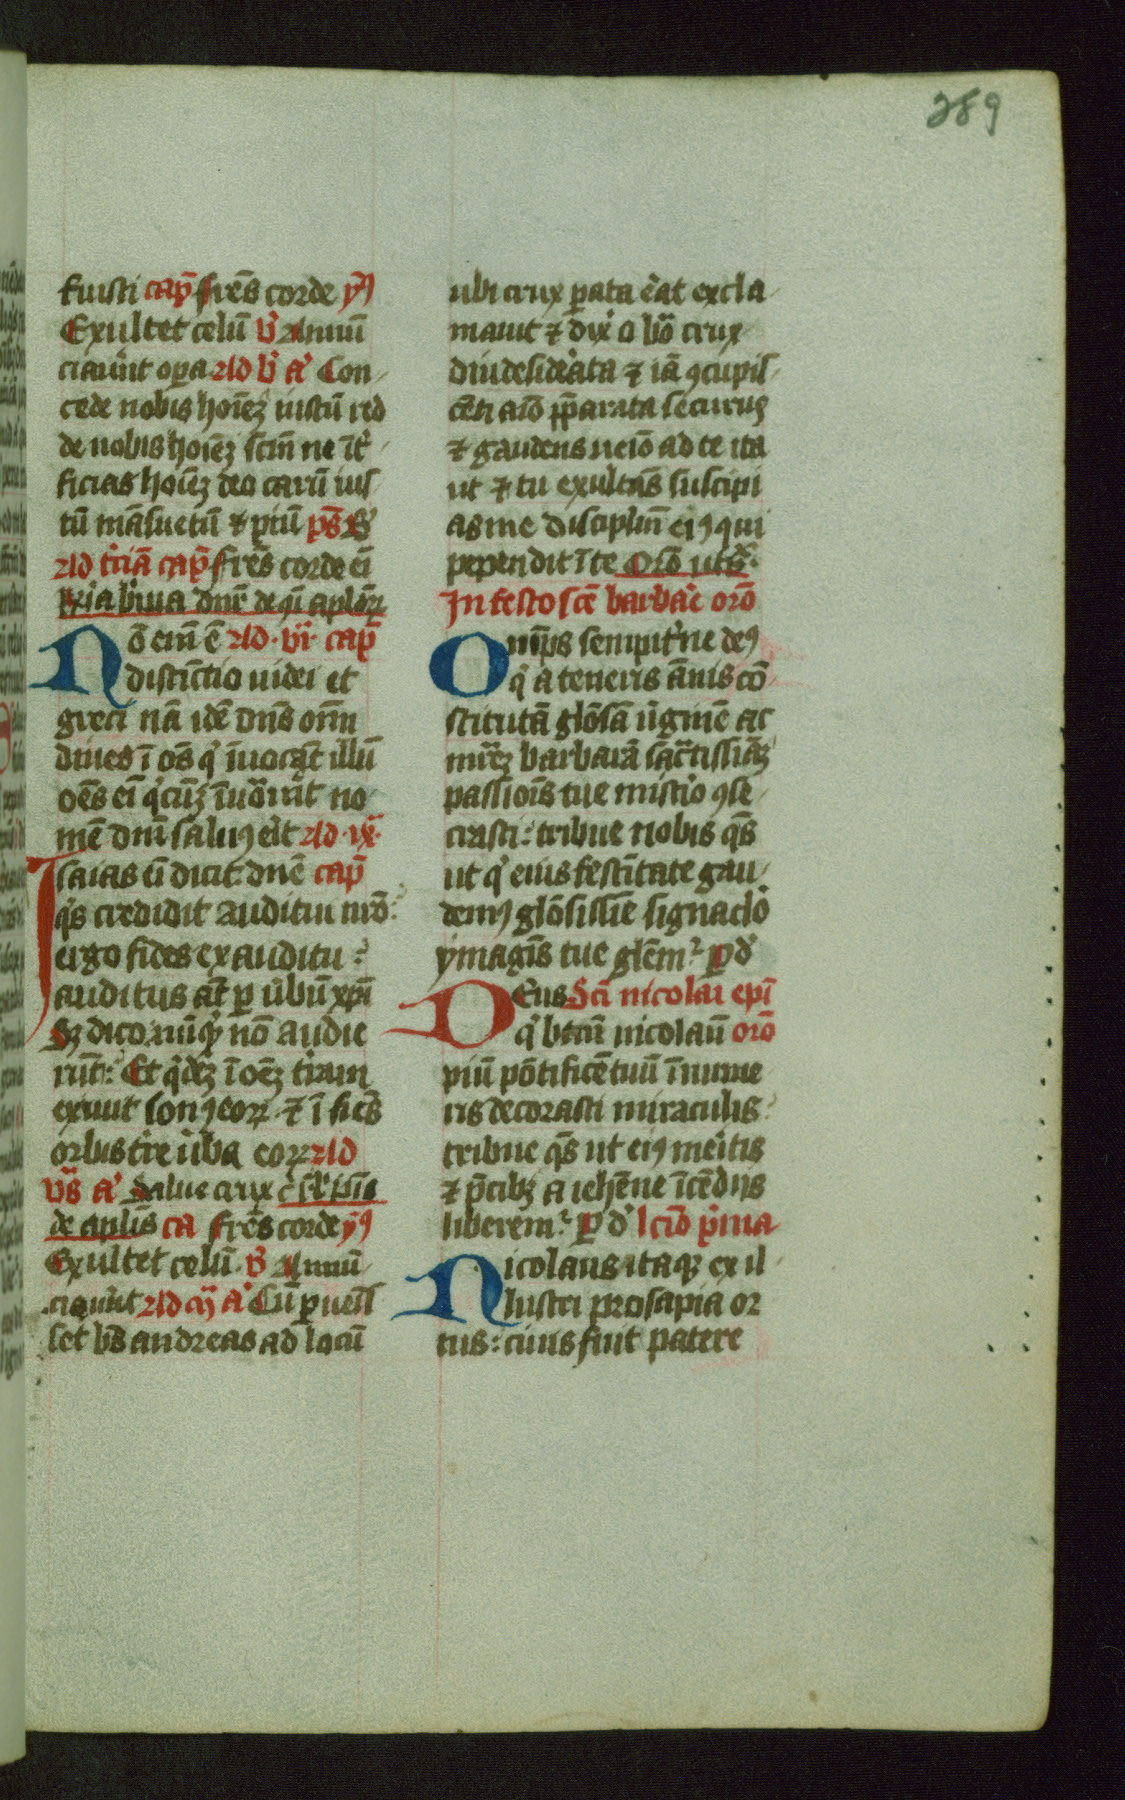 389
fuisti cap̄ fr̄es corde ẏꝰ
Exultet celū v̉ Annu
ciaverūt op̄a ad v̉ aͦ Con
cede nobis hoīeꝫ iustū red
de nobis hoīeꝫ scm̄ ne īt̉
ficias hoīeꝫ deo carū ius
tū māsuetū ⁊ piū ps̄
ad t̉ciā cap̄ fr̄es corde em̄
de q̄i aplōꝝ
Nō em̄ ē ad · vi · cap̄
distinctio iudei et
greci nā idē dn̄s om̄
diues ī oēs q̉ īuocāt illū
oēs em̄ q̉cūqꝫ īuōrit̄ no
mē dn̄i saluꝰ eit ad · ix ·
Isaias em̄ dicit dn̄e cap̄
q̉s credidit auditui nrō
ergo fides ex auditu
auditus at̄ p v̉bū xp̄i
Sꝫ dico nūq̉ nō audie
rūt Et q̉deꝫ ī oēꝫ t̉ram
exiuit sonꝰ eoꝝ ⁊ ī fies̄
orbis tr̄e v̉ba eoꝝ ad
vs̄ aͦ Salue crux
de aplis ca fr̄es corde ẏꝰ
Exultet celū v̉ Annū
ciaver̄t ad aͦ Cū pueīs
set bs̄ andreas ad locū
ubi crux parata ēat excla
mauit ⁊ dix̉ o bōa crux
diu desid̉ata ⁊ iā ꝯcupis
cēti aīo p̄parata securus
⁊ gaudens uēio ad te ita
ut ⁊ tu exultās suscipi
as me disciplm̄ eiꝰ qui
pependit ī te Orō ut s̄
In festo scē barbar̄e orō
Omp̄s sempit̉ne deꝰ
q̉ a teneris ānis cō
stitutā glōsā v̉ginē ac
mr̄eꝫ barbarā sāctissimāꝫ
passiōis tue mist̉io ꝯse
crasti tribue nobis q̄s
ut q̉ eius festītate gau
demꝰ glōsissīe signaclō
ymagīs tue glēm̉ p d̉
Deus Scī nicolai epī
q̉ btm̄ nicolaū orō
piū pōtificē tuū īnume
ris decorasti miraculis
tribue q̄s ut eiꝰ mer̉tis
⁊ p̄cibꝫ a iehēne īcēdijs
liberem̉ P d̉ lc̄io p̉ma
Nicolaus itaqꝫ ex il
lustri prosapia or
tus : cuius fuit patere